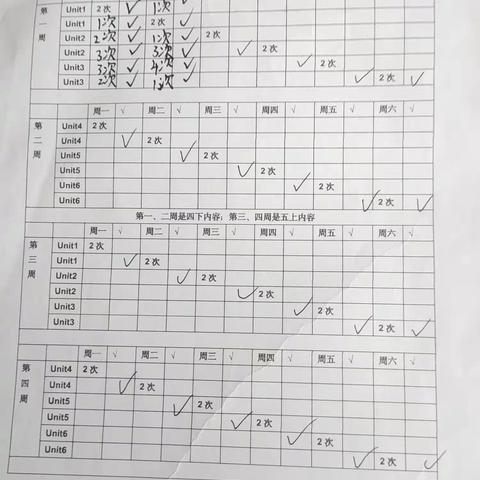 第一周
Unit1 2次 ✓ 1次 ✓
Unit1 1次 ✓ 2次 ✓
Unit2 2次 ✓ 1次 ✓ 2次
Unit2 3次 ✓ 3次 ✓ ✓ 2次
Unit3 3次 ✓ 4次 ✓ ✓ 2次
Unit3 2次 ✓ 1次 ✓ 2次 ✓
周一 √ 周二 √ 周三 √ 周四 √ 周五 √ 周六 √
第二周
Unit4 2次
Unit4 ✓ 2次
Unit5 ✓ 2次
Unit5 ✓ 2次
Unit6 ✓ 2次
Unit6 ✓ 2次 ✓
第一、二周是四下内容；第三、四周是五上内容
周一 √ 周二 √ 周三 √ 周四 √ 周五 √ 周六 √
第三周
Unit1 2次
Unit1 ✓ 2次
Unit2 ✓ 2次
Unit2 ✓ 2次
Unit3 ✓ 2次
Unit3 ✓ 2次 ✓
周一 √ 周二 √ 周三 √ 周四 √ 周五 √ 周六 √
第四周
Unit4 2次
Unit4 ✓ 2次
Unit5 ✓ 2次
Unit5 ✓ 2次
Unit6 ✓ 2次
Unit6 ✓ 2次 ✓